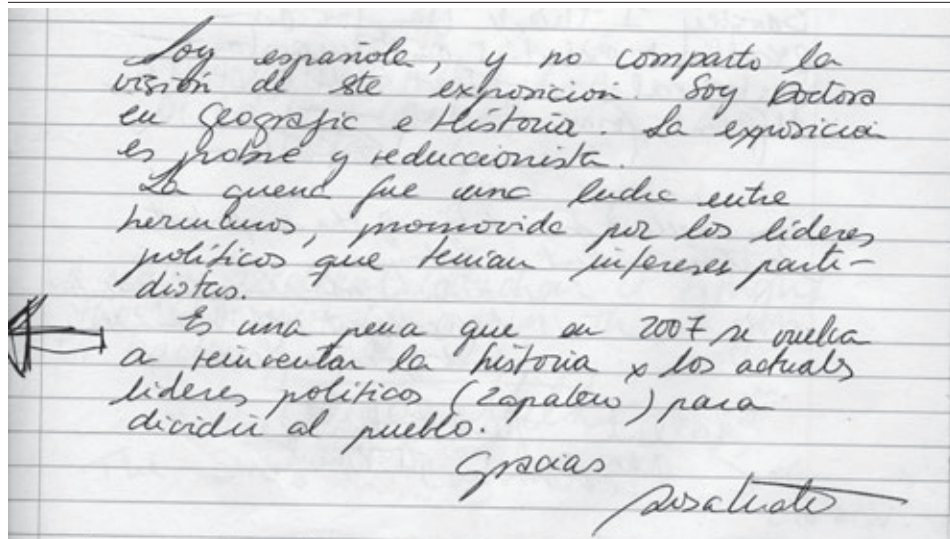 Soy española, y no comparto la
visión de ste exposición. Soy Doctora
en Geografic e Historia. La exposicion
es pobre y reduccionista.
La guerra fue una lucha entre
hermanos, promovida por los líderes
políticos que tenían intereses parti-
distas.
Es una pena que en 2007 se vuelva
a reinventar la historia x los actuales
líderes políticos (Zapatero) para
dividir al pueblo.
Gracias